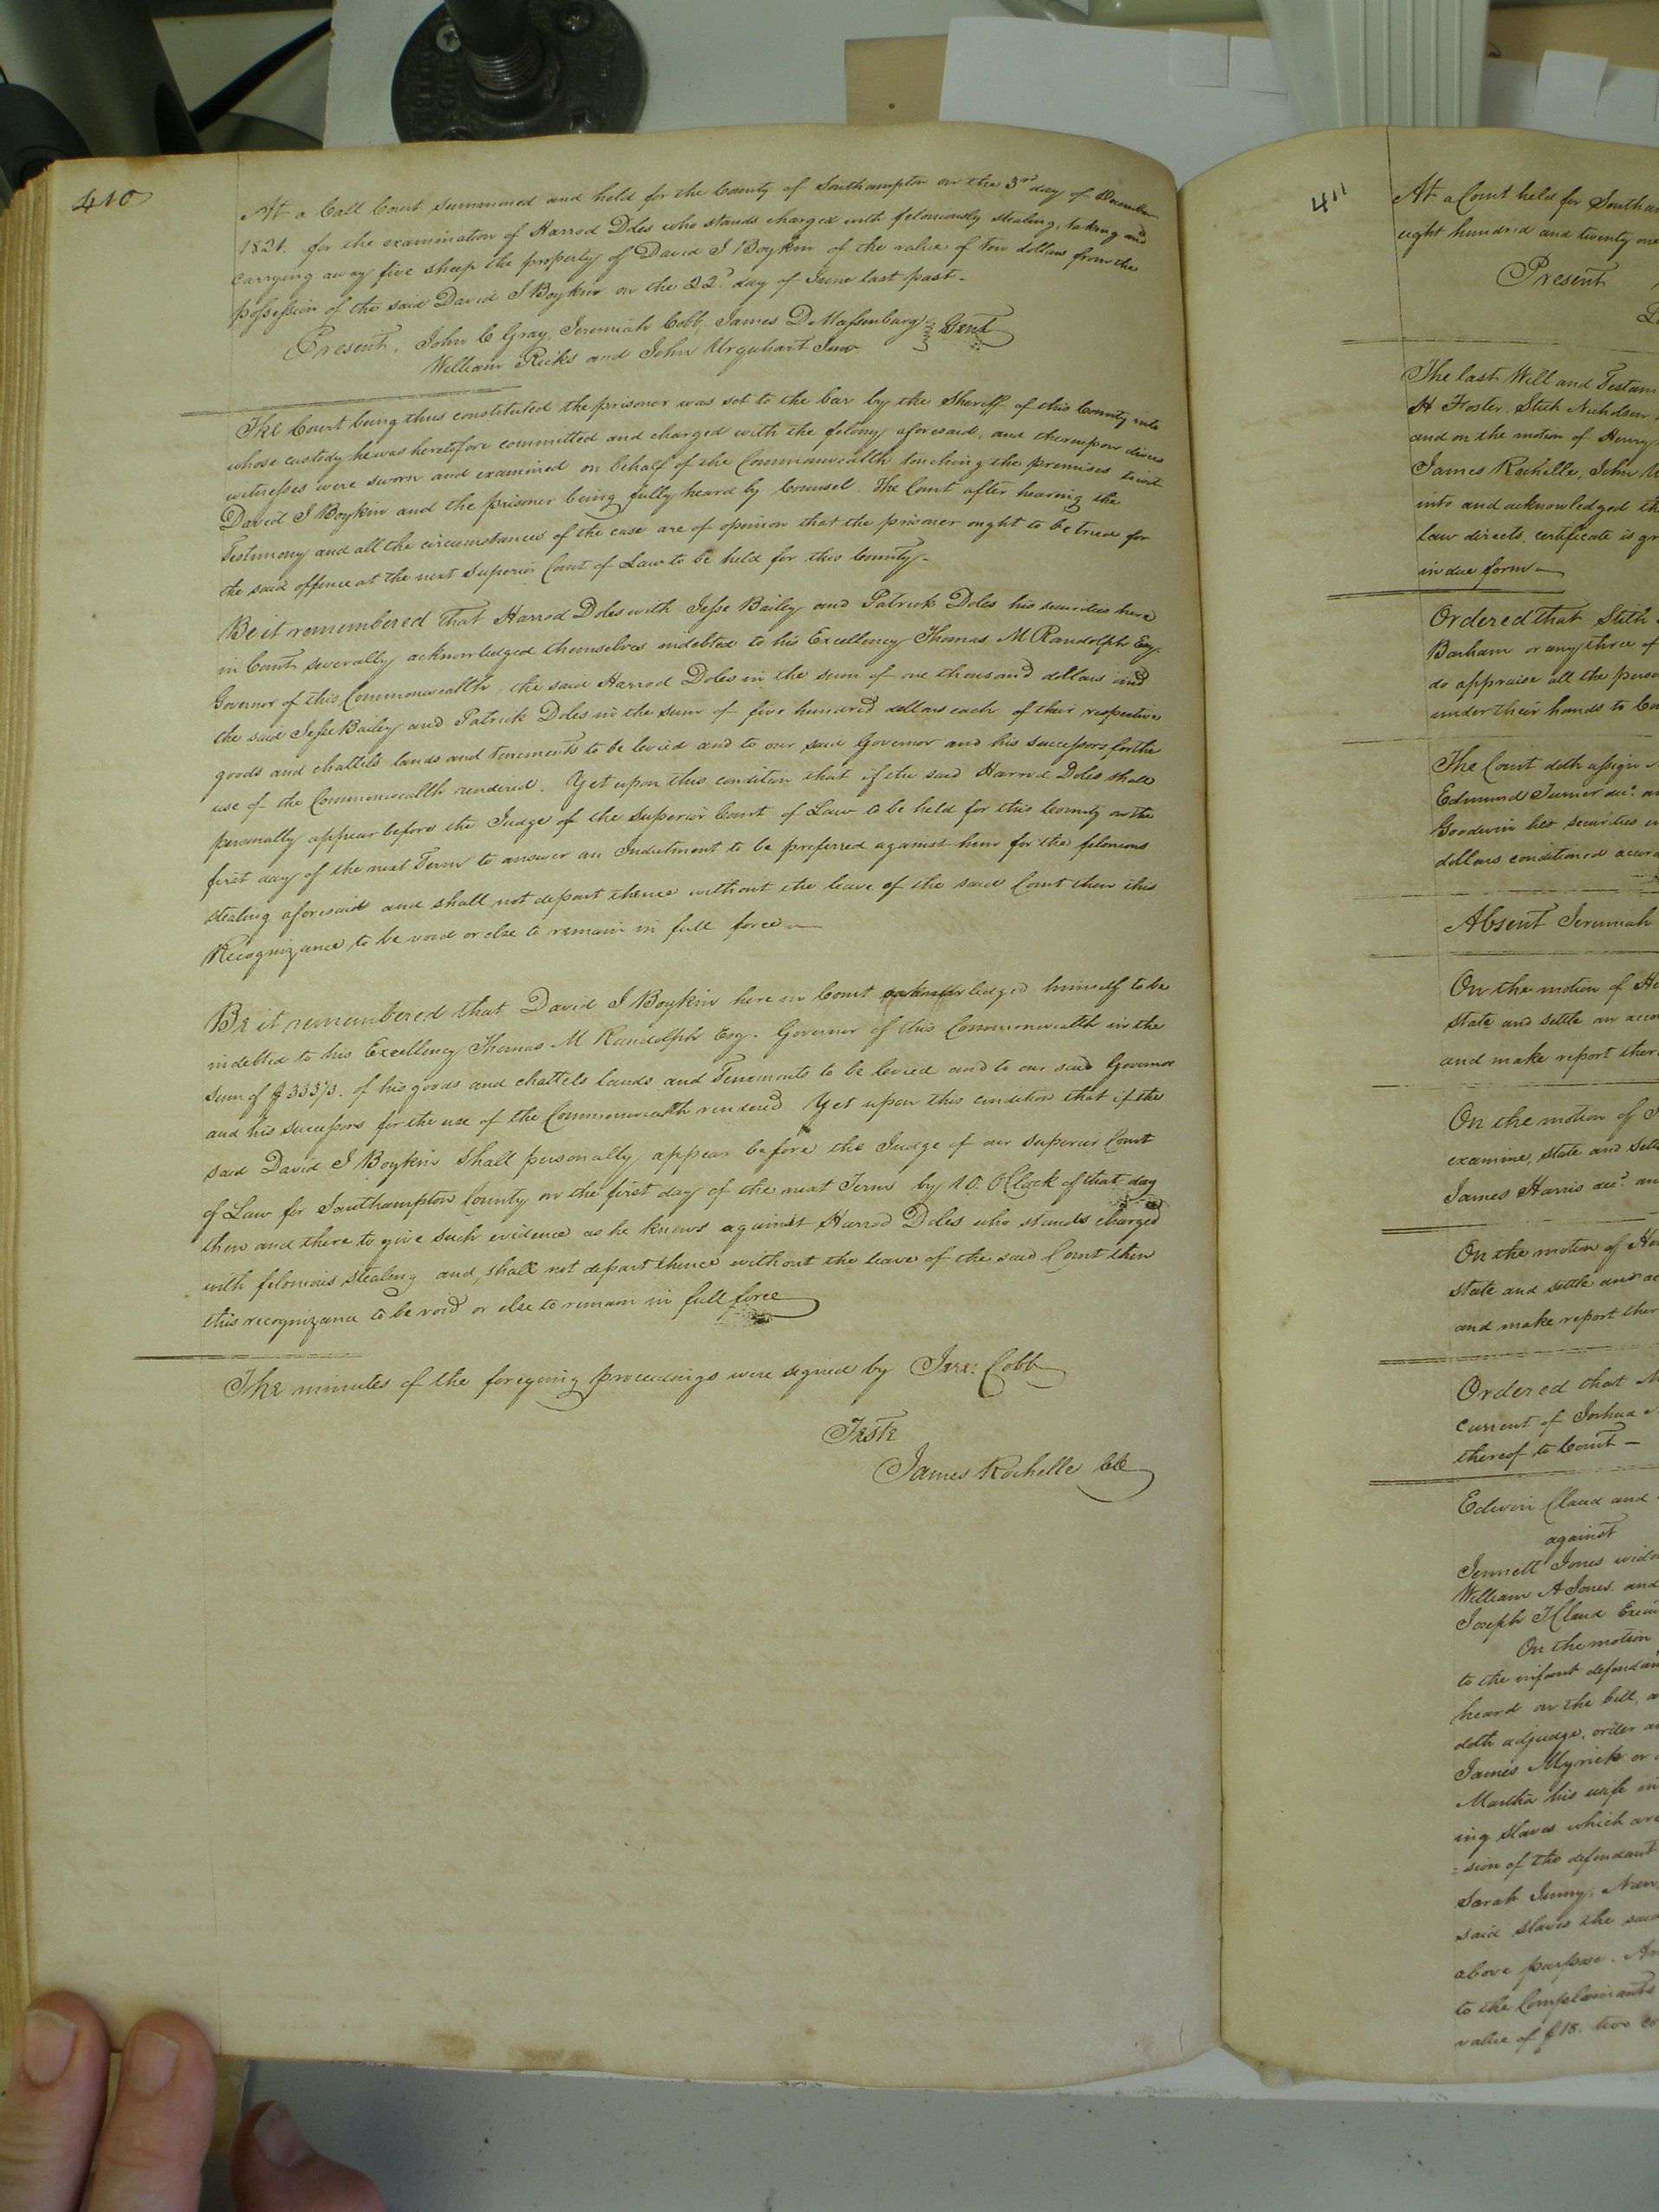 410
At a Call Court Summoned and held for the County of Southampton on the 3rd day of December
1821. for the examination of Harrod Doles who stands charged with feloniously stealing, taking and
carrying away five sheep the property of David J Boykin of the value of ten dollars from the
possession of the said David J Boykin on the 22d day of June last past-
Present, John C Gray, Jeremiah Cobb, James D Massenburg } Gent
William Ricks and John Urquhart Junr
The Court being thus constituted the prisoner was set to the bar by the Sheriff of this County into
whose custody he was heretofore committed and charged with the felony aforesaid, and thereupon divers
witnesses were sworn and examined on behalf of the Commonwealth touching the premises to wit
David J Boykin and the prisoner being fully heard by Counsel. The Court after hearing the
Testimony and all the circumstances of the case are of opinion that the prisoner ought to be tried for
the said offence at the next Superior Court of Law to be held for this County-
Be it remembered That Harrod Doles with Jesse Bailey and Patrick Doles his securities here
in Court severally acknowledged themselves indebted to his Excellency Thomas M Randolph Esq.
Governor of this Commonwealth, the said Harrod Doles in the sum of one thousand dollars and
the said Jesse Bailey and Patrick Doles in the sum of five hundred dollars each of their respective
goods and chattels lands and tenements to be levied and to our said Governor and his successors for the
use of the Commonwealth rendered. Yet upon this condition that if the said Harrod Doles shall
personally appear before the Judge of the Superior Court of Law to be held for this County on the
first day of the next Term to answer an Indictment to be preferred against him for the felonious
stealing aforesaid and shall not depart thence without the leave of the said Court then this
Recognizance to be void or else to remain in full force-
Be it remembered that David J Boykin here in Court acknowledged himself to be
indebted to his Excellency Thomas M Randolph Esq. Governor of this Commonwealth in the
sum of $ of his goods and chattels lands and Tenements to be levied and to our said Governor
and his successors for the use of the Commonwealth rendered. Yet upon this condition that if the
said David J Boykin shall personally appear before the Judge of our superior Court
of Law for Southampton County on the first day of the next Term by 10 O'Clock of that day
then and there to give such evidence as he knows against Harrod Doles who stands charged
with felonious stealing and shall not depart thence without the leave of the said Court then
this recognizance to be void or else to remain in full force
The minutes of the foregoing proceedings were signed by Jere: Cobb
Teste
James Rochelle Clk
411
At a Court held for Southam
eight hundred and twenty one
Present
The last Will and Testam
H Foster, Stith Nicholson
and on the motion of Henry
James Rochelle, John
into and acknowledged th
Law directs, certificate is gr
in due form-
Ordered that Stith
Barham or any three of
do appraise all the perso
under their hands to Co
The Court doth assign
Edmund Turner decd. an
Goodwin her securities
dollars conditioned accor
Absent Jeremiah
On the motion of He
state and settle an acco
and make report ther
On the motion of
examine, state and sett
James Harris decd. an
On the motion of He
state and settle and ac
and make report ther
Ordered that
current of Joshua
thereof to Court-
Edwin Claud and
against
Jennett Jones wido
William A Jones. and
Joseph T Claud Execu
On the motion
to the infant defendan
heard on the bill, a
doth adjudge, order an
James Myrick or
Martha his wife in
ing slaves which are
=sion of the defendant
Sarah Jinny,
said slaves the said
above purpose. An
to the Complainants
value of $18. two